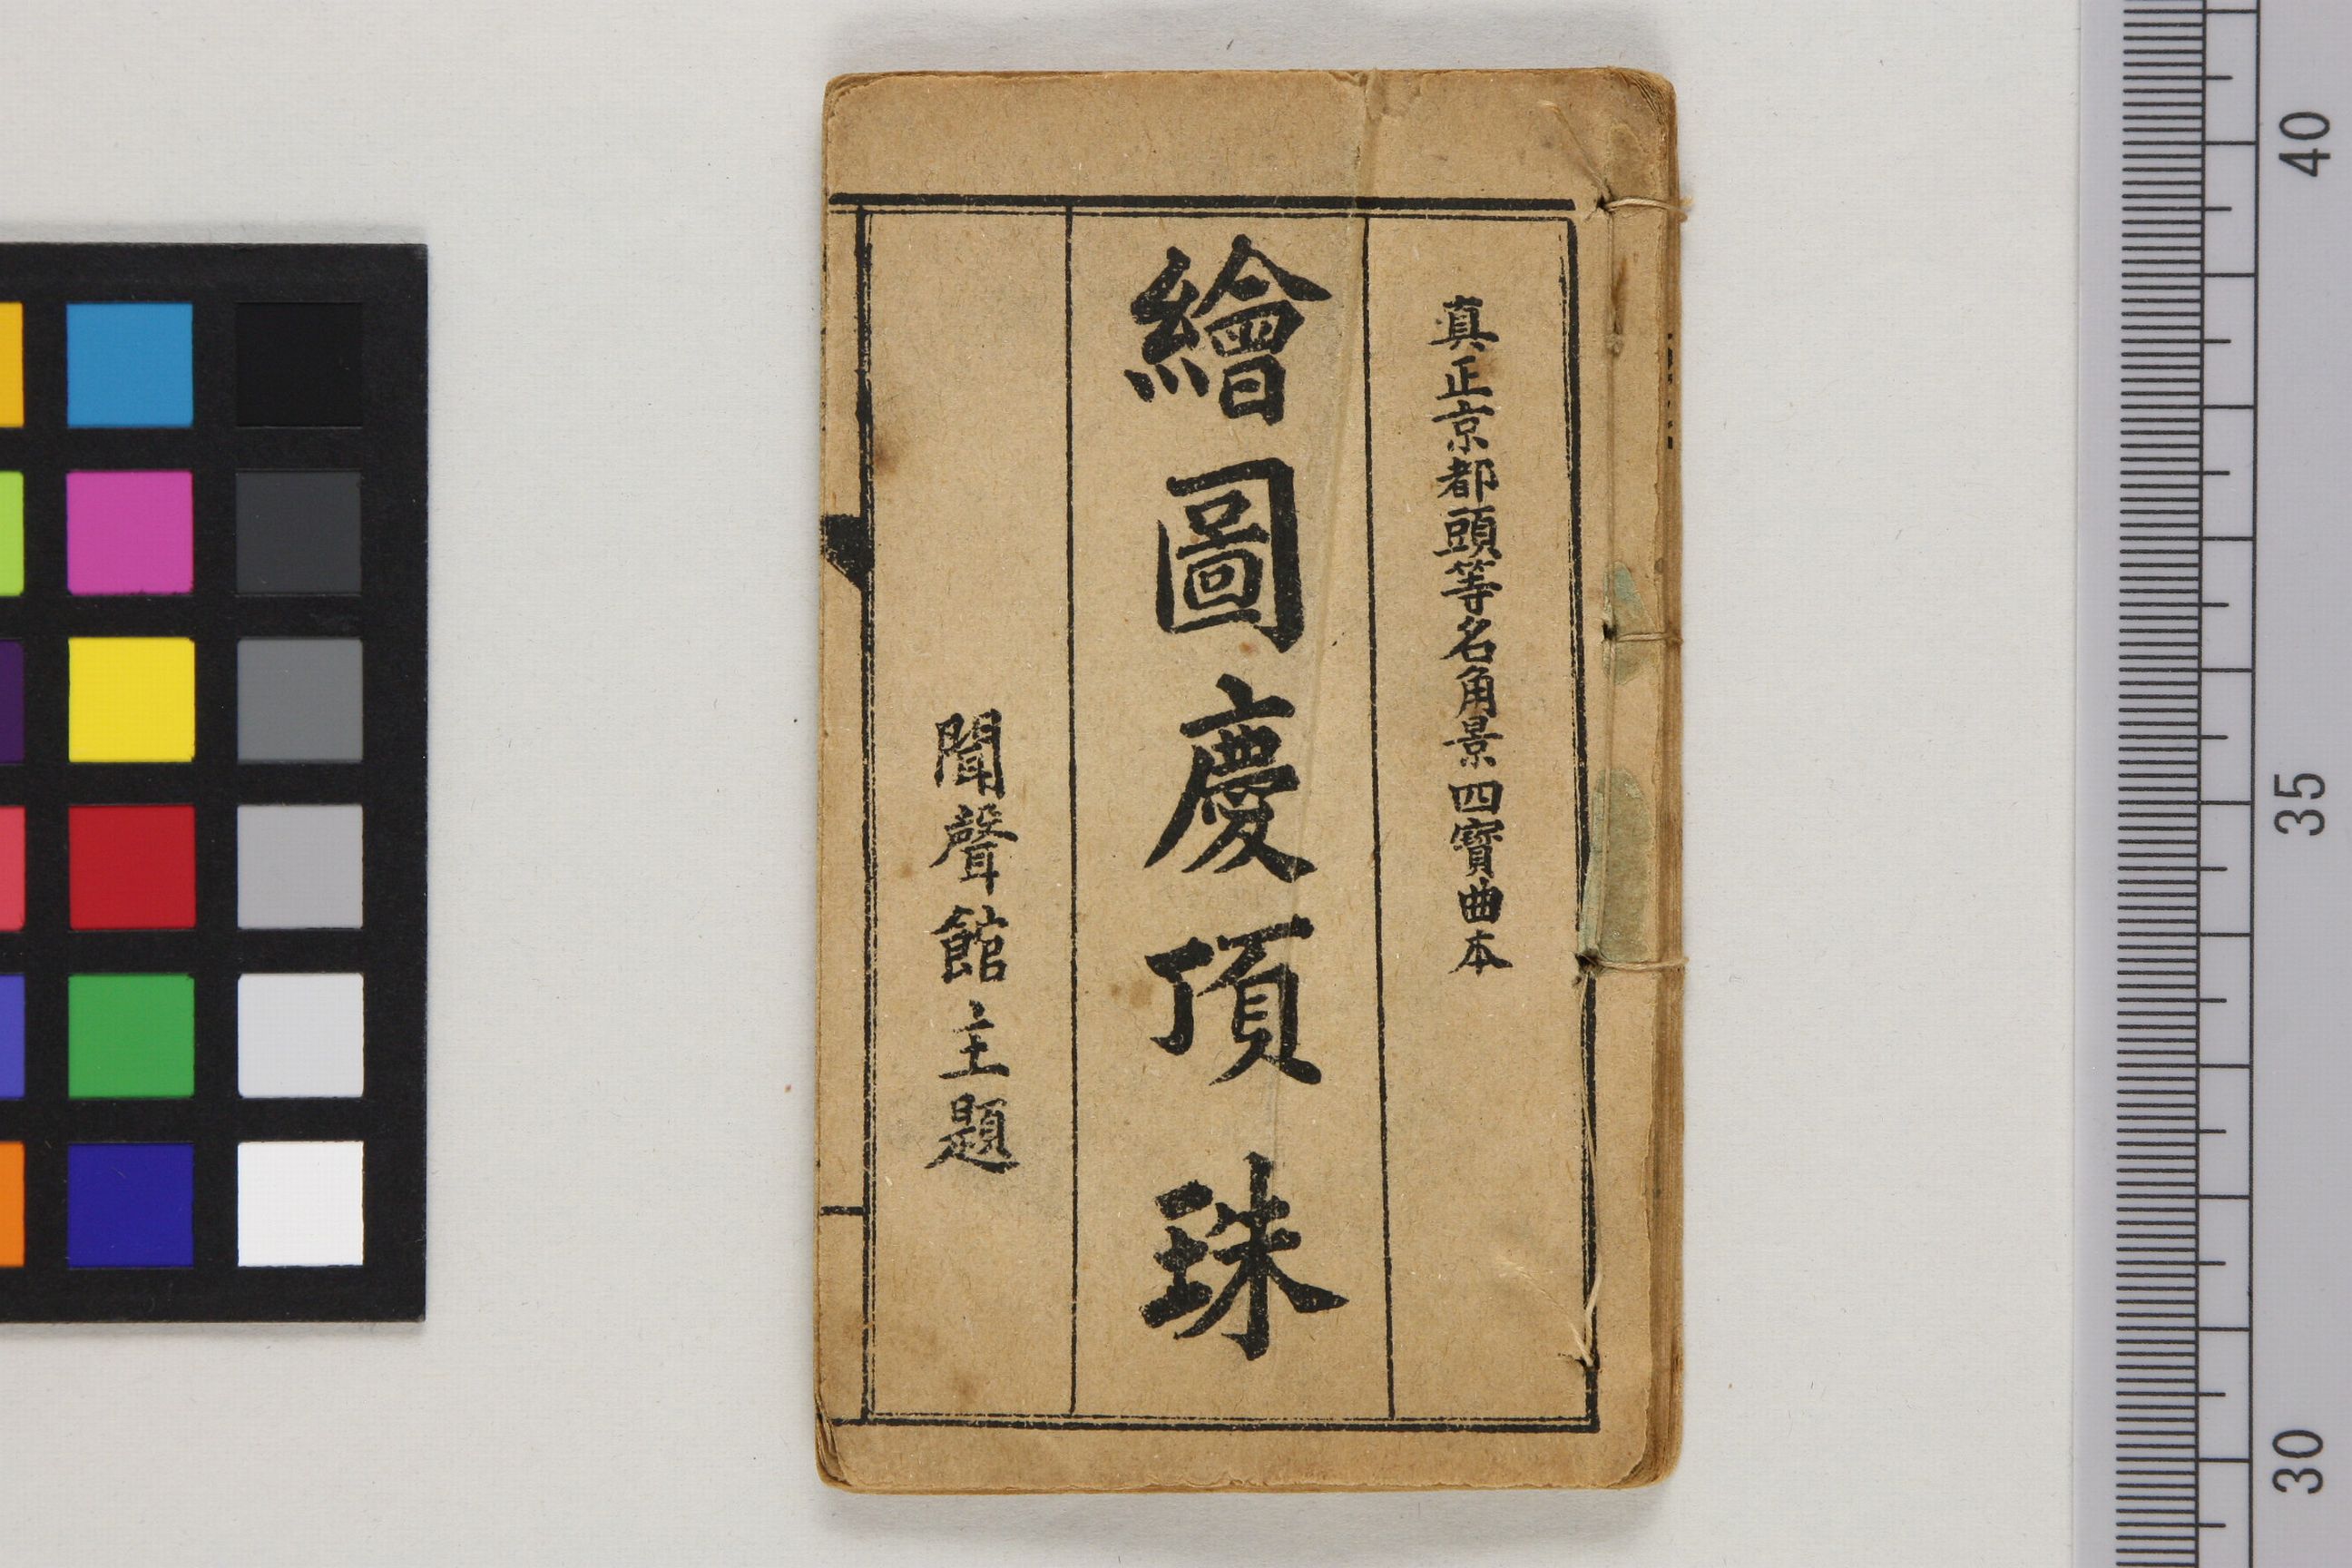 真正京都頭等名角景四寳曲本
繪圖慶頂珠
聞聲館主題
40
35
30